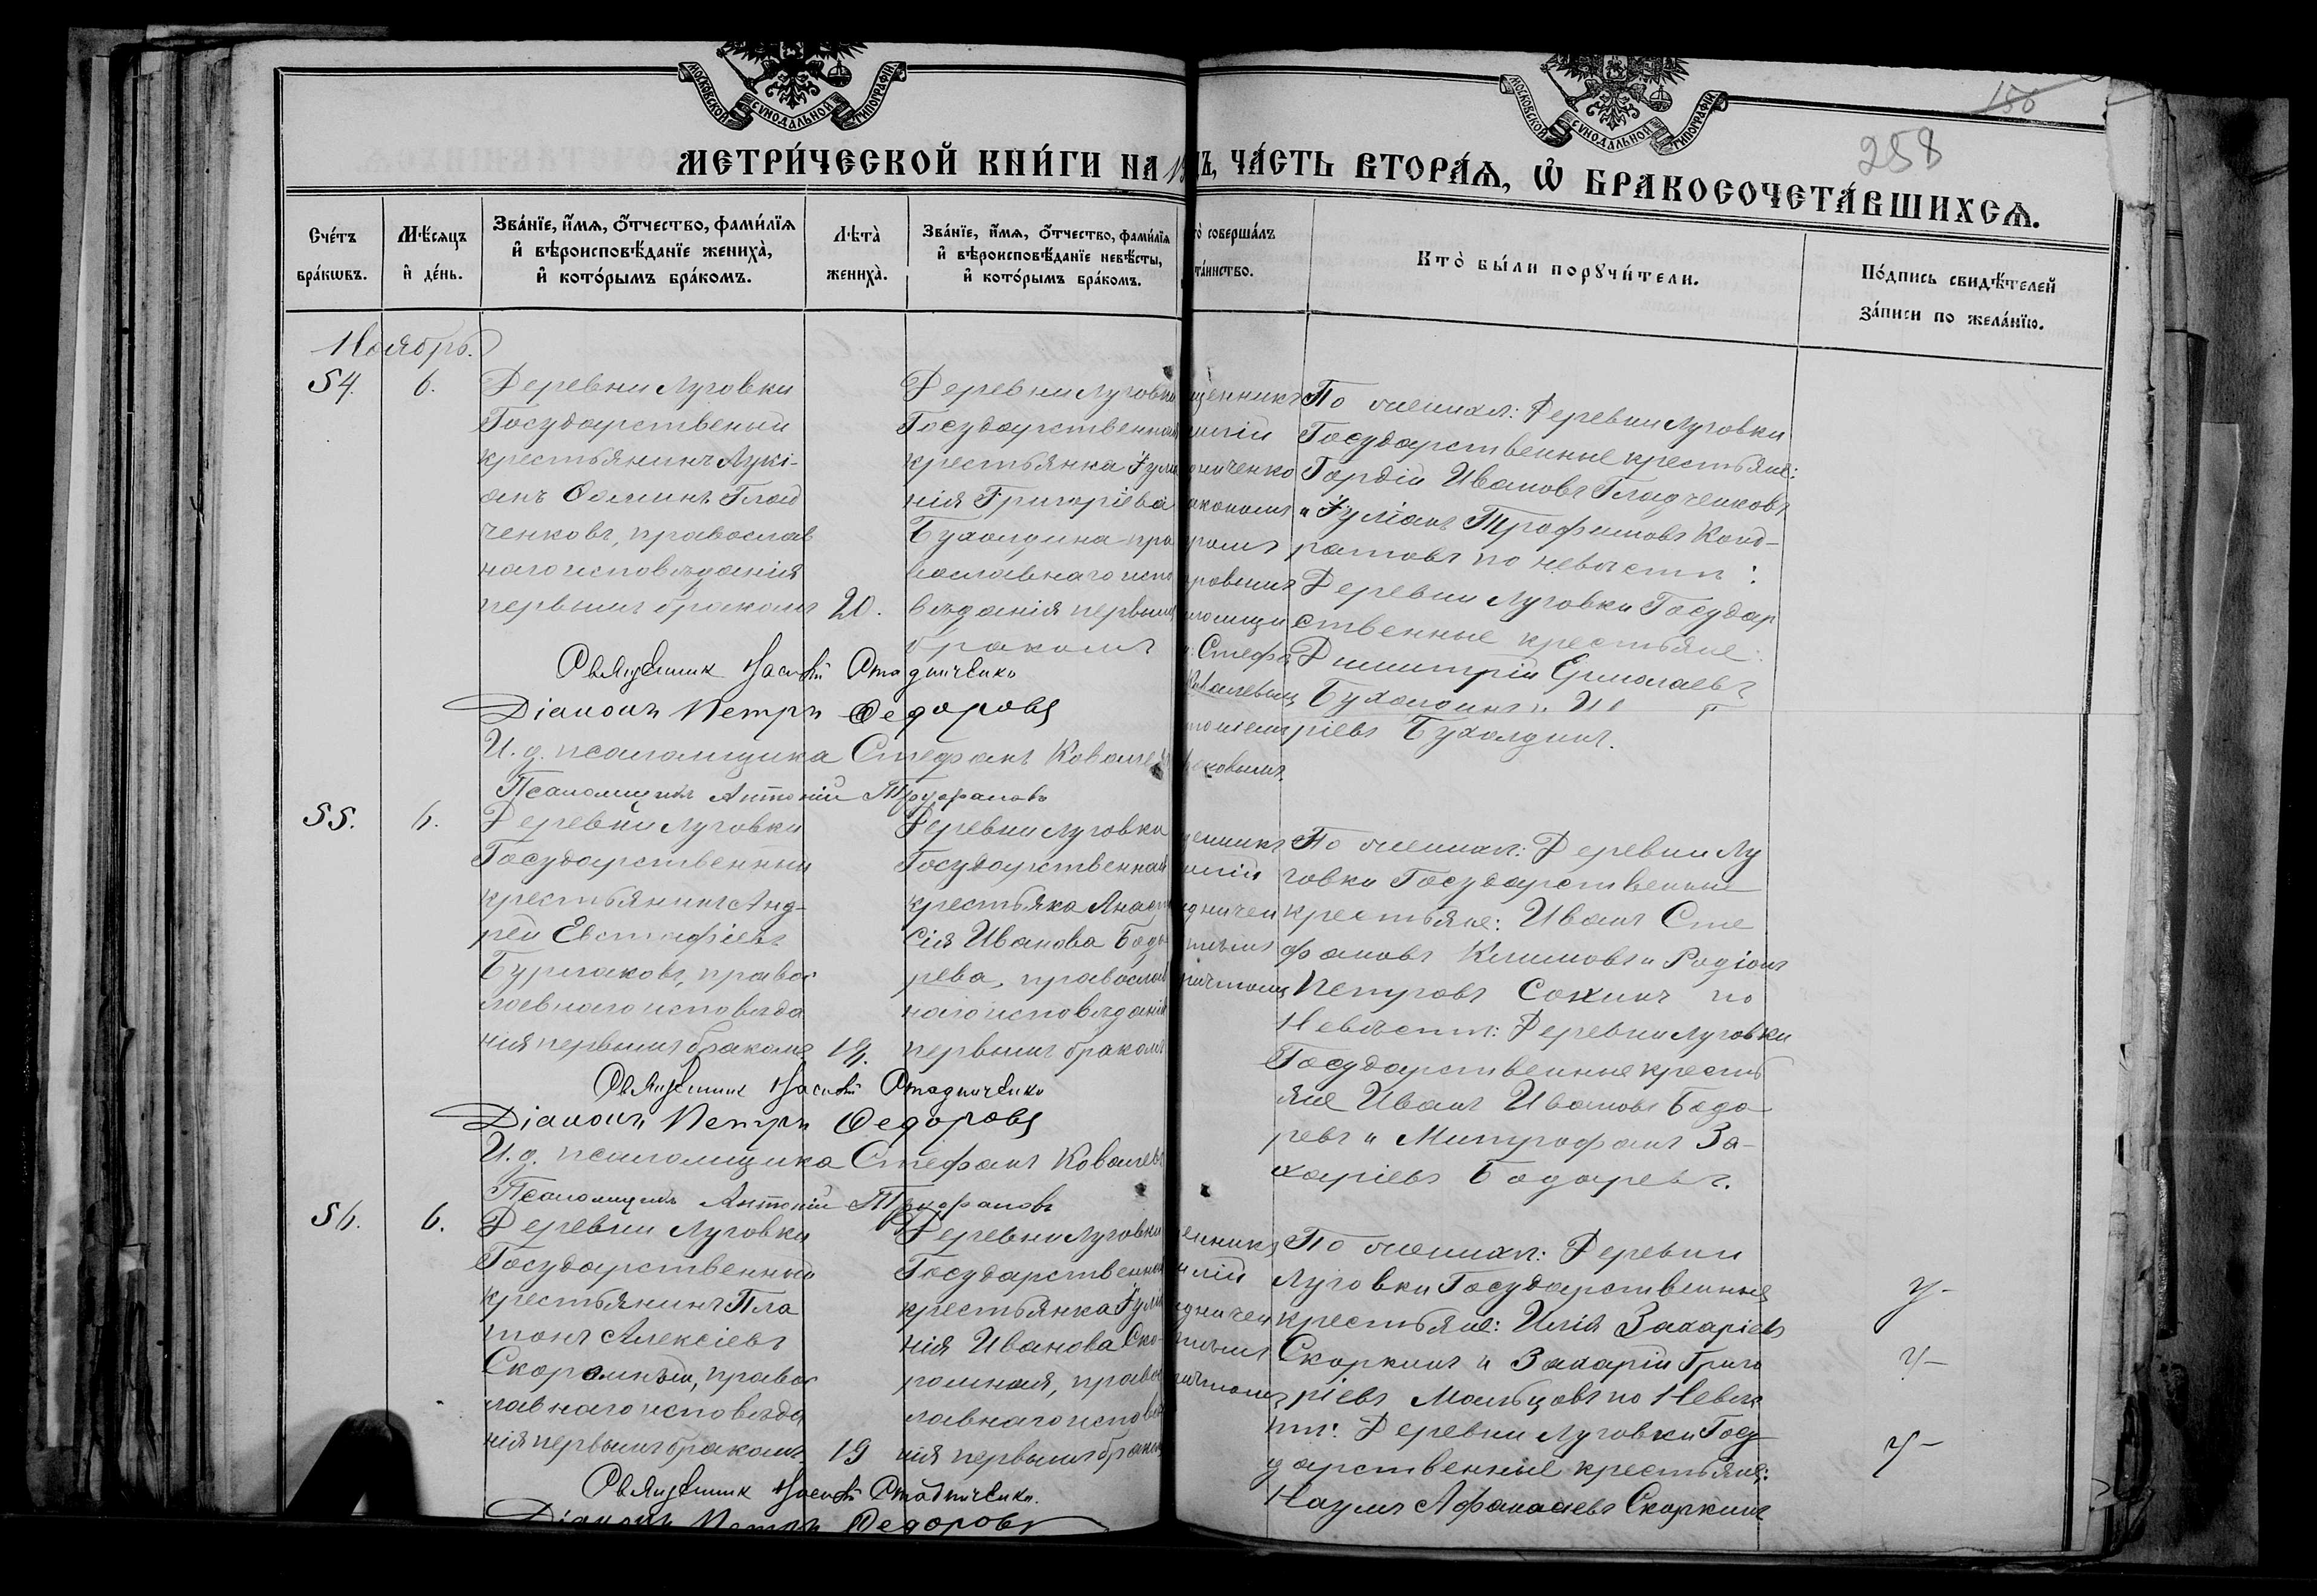 МОСКОВСКОЙ СѴНОДАЛЬНОЙ ТИПОГРАФІИ
МОСКОВСКОЙ СѴНОДАЛЬНОЙ ТИПОГРАФІИ
158
258
МЕТРИ́ЧЕСКОЙ КНИ́ГИ НА
ЧА́СТЬ ВТОРА́Ѧ, Ѽ БРАКОСОЧЕТА́ВШИХСѦ.
Сче́тъ бра́кѡвъ.
Мѣ́сяцъ и҆ де́нь.
Зва́нїе, и҆́мя, ѻ҆́тчество, фами́лїя и҆ вѣроисповѣ́данїе жениха̀, и҆ кото́рымъ бра́комъ.
Лѣта̀ жениха̀.
Зва́нїе, и҆́мя, ѻ҆́тчество, фами́лїя и҆ вѣроисповѣ́данїе невѣ́сты, и҆ кото́рымъ бра́комъ.
соверша́лъ
та́инство.
Кто̀ бы́ли порꙋчи́тели.
По́дпись свидѣ́телей за́писи по жела́нїю.
Ноябрь.
54.
6.
Деревни Луговки
Государственый
крестьянинъ Лукі-
анъ Фоминъ Глад
ченковъ, православ
наго исповѣданія
первымъ бракомъ
20.
Деревни Луговки
Государственная
крестьянка Іули
нія Григоріева
Бухолдина пра
вославнаго испо
вѣданія первым
бракомъ
щенникъ
силій
ниченко
акономъ
тромъ
оровымъ
ломщи
Стефа
Ковалевым
По женихѣ: Деревни Луговки
Государственные крестьяне:
Гордій Ивановъ Гладченковъ
и Іуліанъ Трофимовъ Конд-
ратовъ по невѣстѣ:
Деревни Луговки Государ
ственные крестьяне:
Димитрій Ермолаевъ
Бухолдинъ и
ріевъ Бухолдинъ.
Священник Василій Стадниченко
Діаконъ Петръ Федоровъ
И. д. псаломщика Стефанъ Ковалев
Псаломщикъ Антоній Труфановъ
55.
6.
Деревни Луговки
Государственный
крестьянинъ Анд-
рей Евстафіевъ
Бурлаковъ, правос
лавнаго исповѣда
нія первымъ бракомъ
19.
Деревни Луговки
Государственная
крестьяка Анаст
сія Иванова Бода
рева, православ
наго исповѣданія
первымъ бракомъ
щенникъ
силій
дничен
тѣмъ
ричтомъ
По женихѣ: Деревни Лу
говки Государственные
крестьяне: Иванъ Сте
фановъ Климовъ и Родіонъ
Петровъ Сохинъ по
Невѣстѣ: Деревни Луговки
Государственные кресть
яне Иванъ Ивановъ Бода-
ревъ и Митрофанъ За-
харіевъ Бодаревъ.
Священник Василій Стадниченко
Діаконъ Петръ Федоровъ
И. д. псаломщика Стефанъ Ковалевъ
Псаломщикъ Антоній Труфановъ
56.
6.
Деревни Луговки
Государственный
крестьянинъ Пла
тонъ Алексіевъ
Скоромный, правос
лавнаго исповѣда
нія первымъ бракомъ
19
Деревни Луговки
Государственная
крестьянка Іули
нія Иванова Ско-
ромная, правос
лавнаго исповѣ
нія первымъ брако
щенникъ
силій
дничен
тѣмъ
ричтомъ
По женихѣ: Деревни
Луговки Государственные
крестьяне: Илія Захаріевъ
Скоркинъ и Захарій Григо
ріевъ Мальцовъ по Невѣс
тѣ: Деревни Луговки Госу
дарственные крестьяне:
Наумъ Афанасіевъ Скоркинъ
Священник Василій Стадниченко.
Діаконъ Петръ Федоровъ